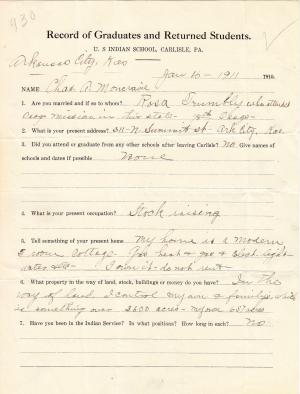 930
Record of Graduates and Returned Students.
U. S INDIAN SCHOOL, CARLISLE, PA.
Arkansas City, Kas
Jan 10 - 1911 1910.
NAME Chas. A.
1. Are you married and if so to whom? Rosa Trumbly who attended
Osage Mission in this state.
2. What is your present address? 311-N. Summit St. Ark. City, Kas
3. Did you attend or graduate from any other schools after leaving Carlisle? No Give names of
schools and dates if possible None
4. What is your present occupation? Stock raising
5. Tell something of your present home My home is a modern
5 room cottage. Gas heat & gas & Elect. light
I own it - do not rent
6. What property in the way of land, stock, buildings or money do you have? In the
way of land I control my own & families which
is something over 2600 acres - my own
7. Have you been in the Indian Service? In what positions? How long in each? No.